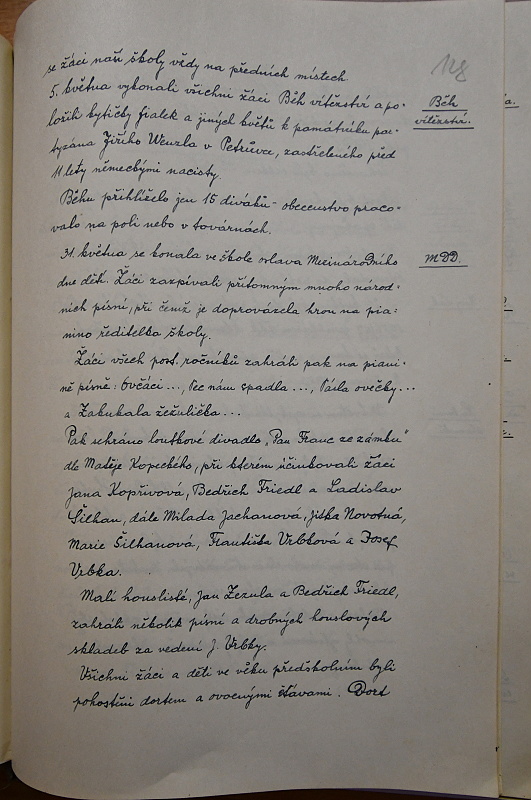 128
se žáci naší školy vždy na předních místech.
5. května vykonali všichni žáci Běh vítězství a po-
ložili kytičky fialek a jiných květů k památníku par-
tyzána Jiřího Wenzla v Petrůvce, zastřeleného před
11 lety německými nacisty.
Běh
vítězství.
Běhu přihlíželo jen 15 diváků - obecenstvo praco-
valo na poli nebo v továrnách.
31. května se konala ve škole oslava Mezinárodního
dne dětí. Žáci zazpívali přítomným mnoho národ-
ních písní, při čemž je doprovázela hrou na pia-
nino ředitelka školy.
MDD.
Žáci všech post. ročníků zahráli pak na piani-
ně písně: Ovčáci ..., Pec nám spadla ..., Pásla ovečky ...
a Zakukala žežulička ...
Pak sehráno loutkové divadlo „Pan Franc ze zámku"
dle Matěje Kopeckého, při kterém účinkovali žáci
Jana Kopřivová, Bedřich Friedl a Ladislav
Šilhan, dále Milada Jachanová, Jitka Novotná,
Marie Šilhanová, Františka Vrbková a Josef
Vrbka.
Malí houslisté, Jan Zezula a Bedřich Friedl,
zahráli několik písní a drobných houslových
skladeb za vedení J. Vrbky.
Všichni žáci a děti ve věku předškolním byli
pohoštěni dortem a ovocnými šťávami. Dort